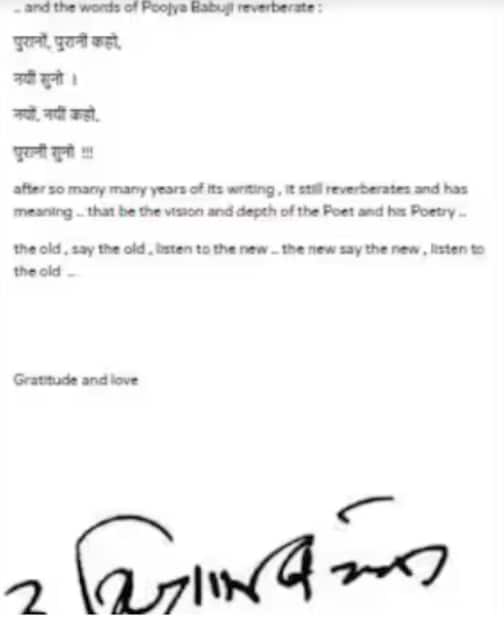 .. and the words of Poojya Babuji reverberate :
पुरानों, पुरानी कहो,
नयी सुनो ।
नयों, नयी कहो,
पुरानी सुनो !!!
after so many many years of its writing , it still reverberates and has
meaning .. that be the vision and depth of the Poet and his Poetry ..
the old , say the old , listen to the new .. the new say the new , listen to
the old ..
Gratitude and love